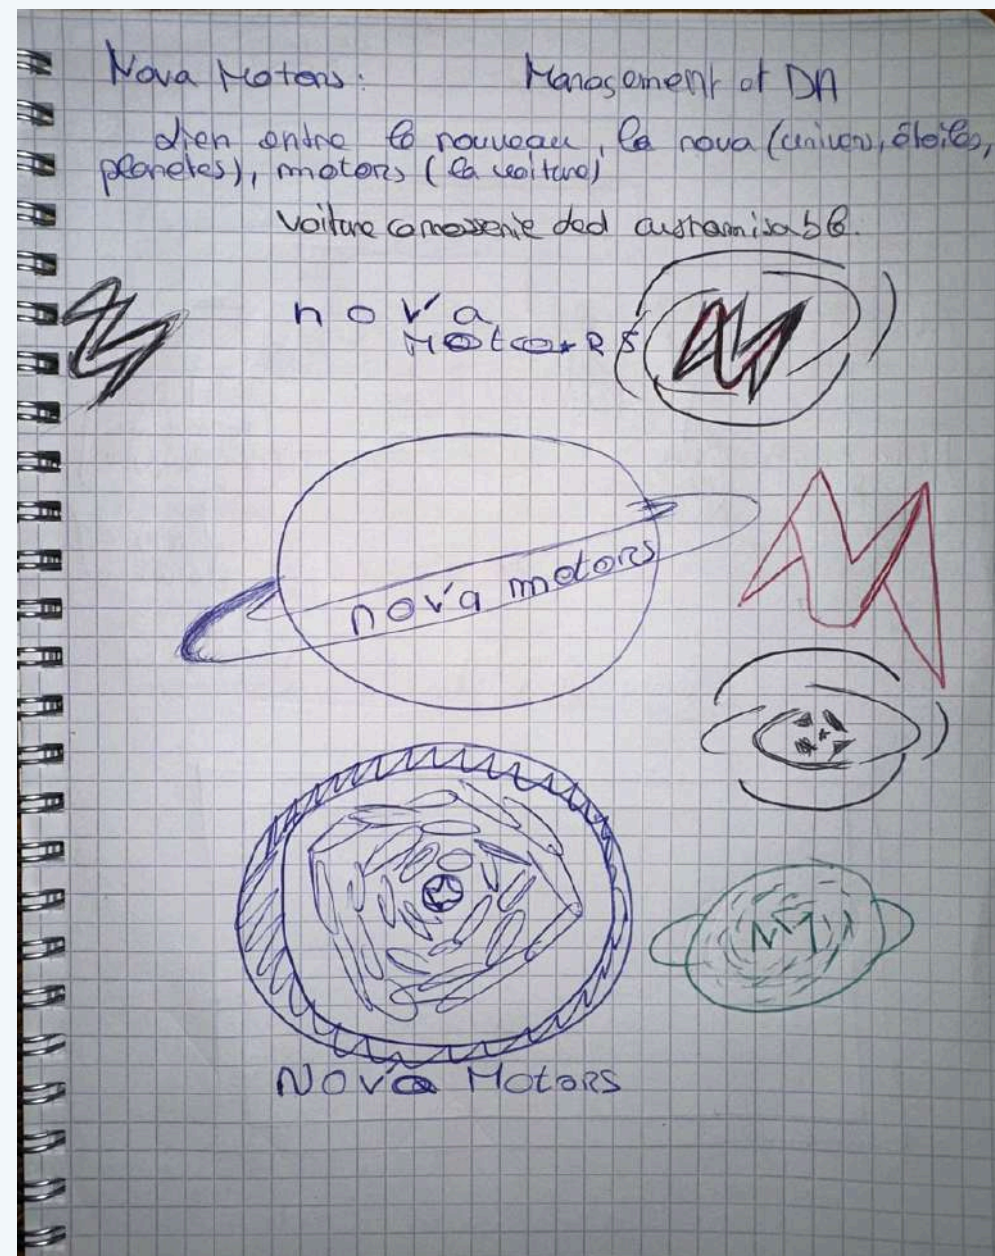 Nova Motors :
Management of DA
Lien entre le nouveau, la nova (univers, étoiles,
planètes), motors (la voiture)
Voiture carrosserie customisable.
nova
MotoRS
nova motors
NM
Nova MotoRS